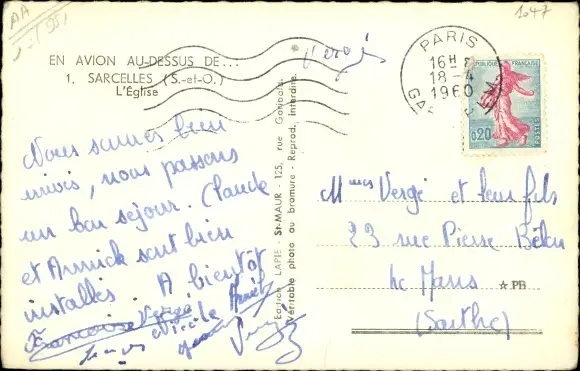 AA
1047
EN AVION AU-DESSUS DE...
1. SARCELLES (S.-et-O.)
L'Église
Vergés
PARIS
16H
18-4
1960
GA
RÉPUBLIQUE FRANÇAISE
0,20
POSTES
Nous sommes bien
arrivés, nous passons
un bon séjour. Claude
et Annick sont bien
installés. A bientôt
Francoise Vergé
Nicole
Edition LAPIE - St-MAUR - 125, rue Garibaldi.
Véritable photo au bromure - Reprod. interdite.
Mmes Vergé et leur fils
23 rue Pierre Belon
Le Mans
★ PB
(Sarthe)